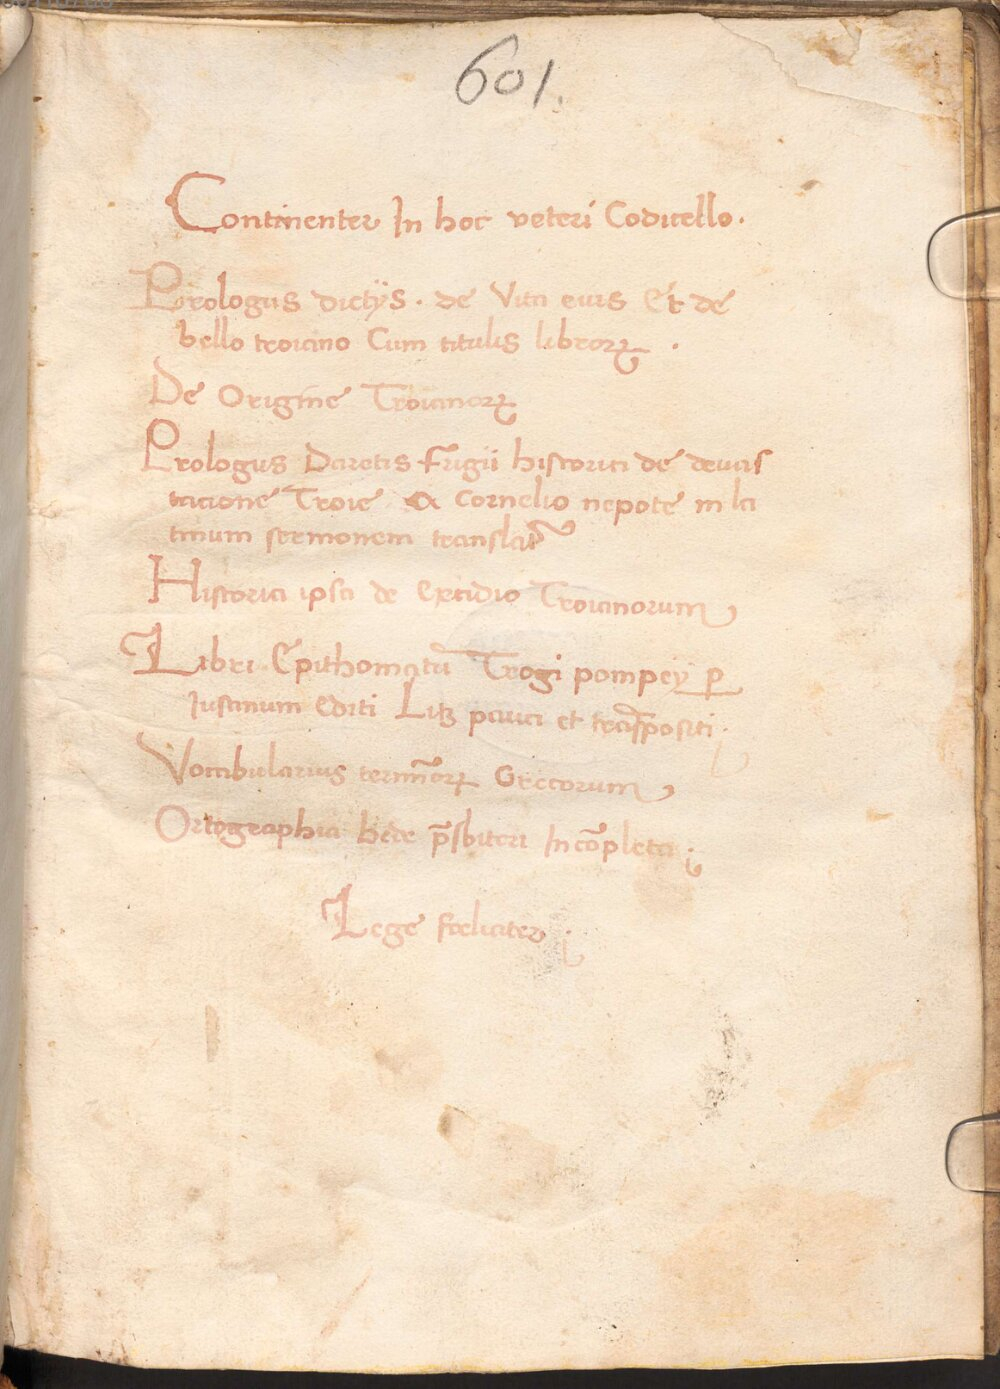 601.
Continenter In hoc veteri Codicello.
Prologus dictÿs. de Vita eius Et de
bello troiano Cum titulis libroꝝ.
De Origine Troianoꝝ
Prologus Daretis Frigii historici de deuas
tacione Troie A Cornelio nepote in la
tinum sermonem translat᷒
Historia ipsa de Excidio Troianorum
Libri Epithomatū Trogi pompeÿ ꝑ
Iustinum editi Lꝫ pauci et trāspositi.
Vocabularius terminoꝝ Grecorum
Ortographia bede p̄sbiteri Incōpleta ;
Lege foeliciter ;